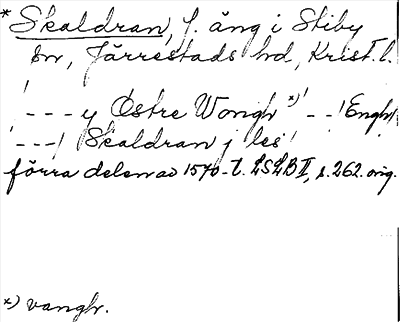 * Skaldran, f. äng i Stiby
sn, Järrestads hd, Krist. l.
'--- y Østre Wongh *)' --! Enghr
'---! Skaldran j les'
förra delen av 1570-t. LSLB II, s. 262. orig.
*) vanghr.